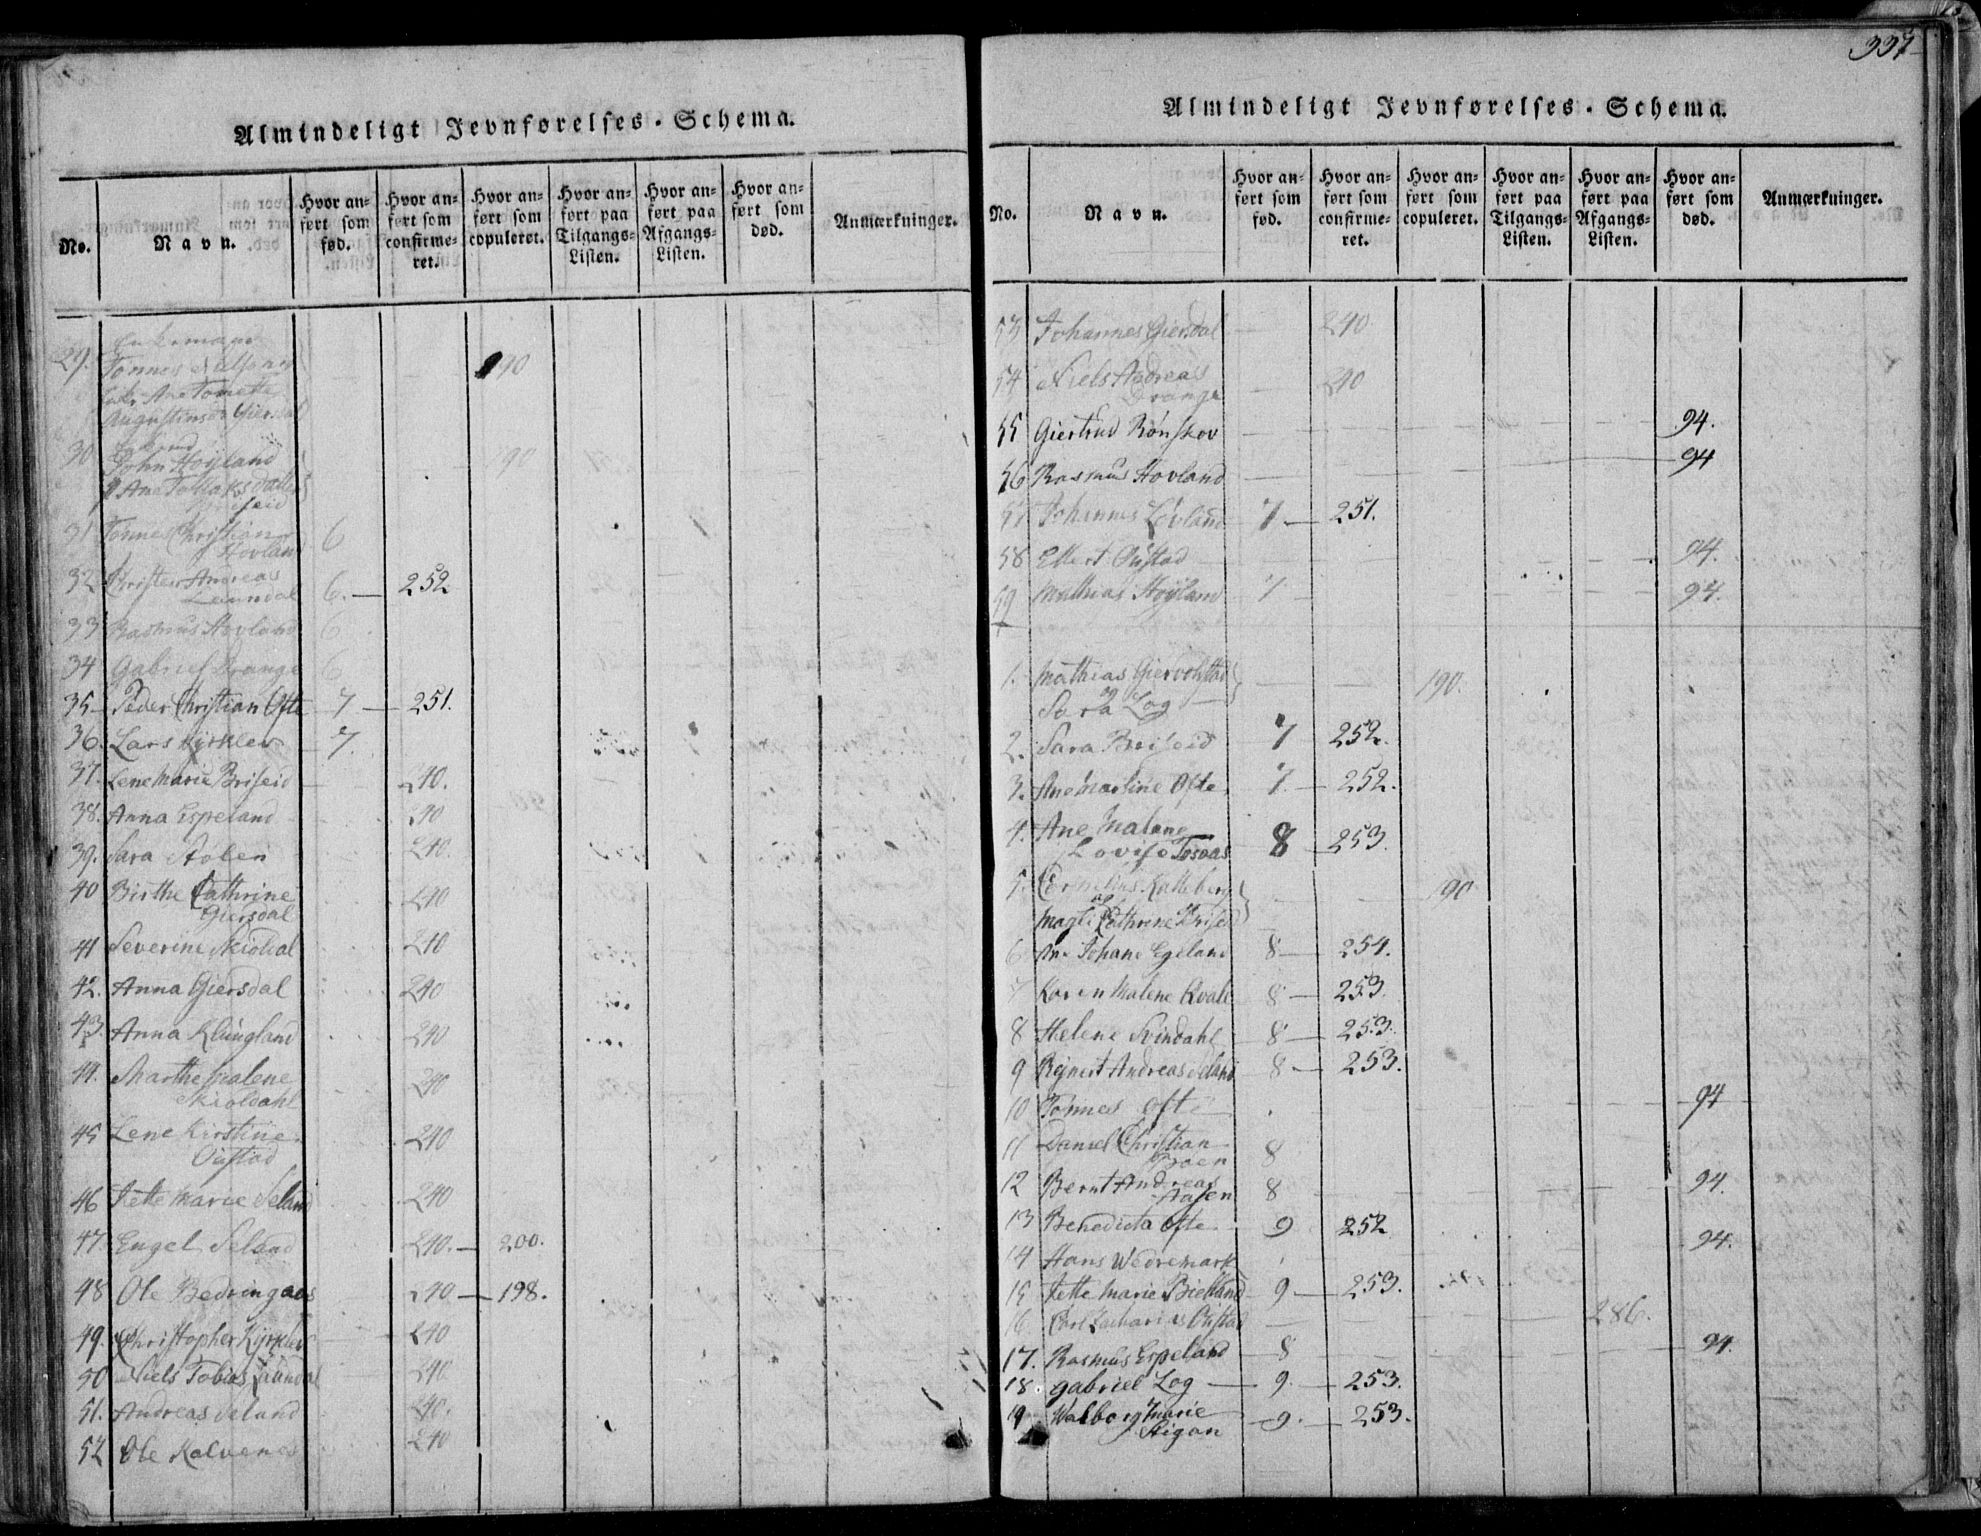 337
Almindeligt Jevnførelses-Schema.
No. Navn. Hvor anført som fød. Hvor anført som confirmeret. Hvor anført som copuleret. Hvor anført paa Tilgangs-Listen. Hvor anført paa Afgangs-Listen. Hvor anført som død. Anmærkninger.
29. Enkemand
Tønnes
Ane Tomette 190
Augustinsd. Giersdal
30 John Høyland 190
Ane
Briseid
31 Tønnes Christian 6
Hovland
32 Christen Andreas
Laundal 6. — 252
33 Rasmus Hovland 6
34 Gabriel Drange 6
35 Peder Christian Ofte 7 — 251.
36. Lars Kyrklev 7.
37. Lene Marie Briseid 240.
38. Anna Espeland 240
39. Sara Stølen 240.
40 Birthe Cathrine
Giersdal 240
41 Severine Skioldal 240
42. Anna Giersdal 240
43. Anna Klungland 240
44. Marthe Malene
Skioldahl 240
45 Lene Kirstine
Oustad 240
46 Jette Marie Seland 240
47. Engel Seland 240. — 200.
48 Ole Bedringaas 240 — 198.
49. Christopher Kyrklev 240
50 Niels Tobias Laundal 240
51. Andreas Seland 240.
52 Ole Kalvenes 240
Almindeligt Jevnførelses-Schema.
No. Navn. Hvor anført som fød. Hvor anført som confirmeret. Hvor anført som copuleret. Hvor anført paa Tilgangs-Listen. Hvor anført paa Afgangs-Listen. Hvor anført som død. Anmærkninger.
53 Johannes Giersdal 240
54 Niels Andreas
Drange 240
55 Giertrud Rønskov 94.
56 Rasmus Hovland 94
57 Johannes Løvland 7 — 251.
58 Ellert Oustad 94.
59 Mathias Høyland 7 94.
1. Mathias Giervolstad
og 190.
Sara Log
2. Sara Briseid 7 252.
3. Ane Martine Ofte 7. — 252.
4. Ane Malene
Lovise Tosaas 8 — 253.
5. Cornelius Kalleberg
og 190
Magli Cathrine Briseid
6 Ane Johane Egeland 8 — 254.
7 Karen Malene Kvale 8 — 253.
8 Helene Svindahl 8 — 253.
9 Rejnert Andreas Seland 8 — 253.
10 Tønnes Ofte 94
11 Daniel Christian
Moen 8
12 Bernt Andreas
Aasen 8 94.
13 Benedicta Ofte 9 252
14 Hans Wedremark 94.
15 Jette Marie Biekland 9 — 253.
16 Carl Zacharias Oustad 286.
17. Rasmus Espeland 8 94.
18. Gabriel Log — 9. — 253.
19 Walborg Marie
Stigan 9. — 253.